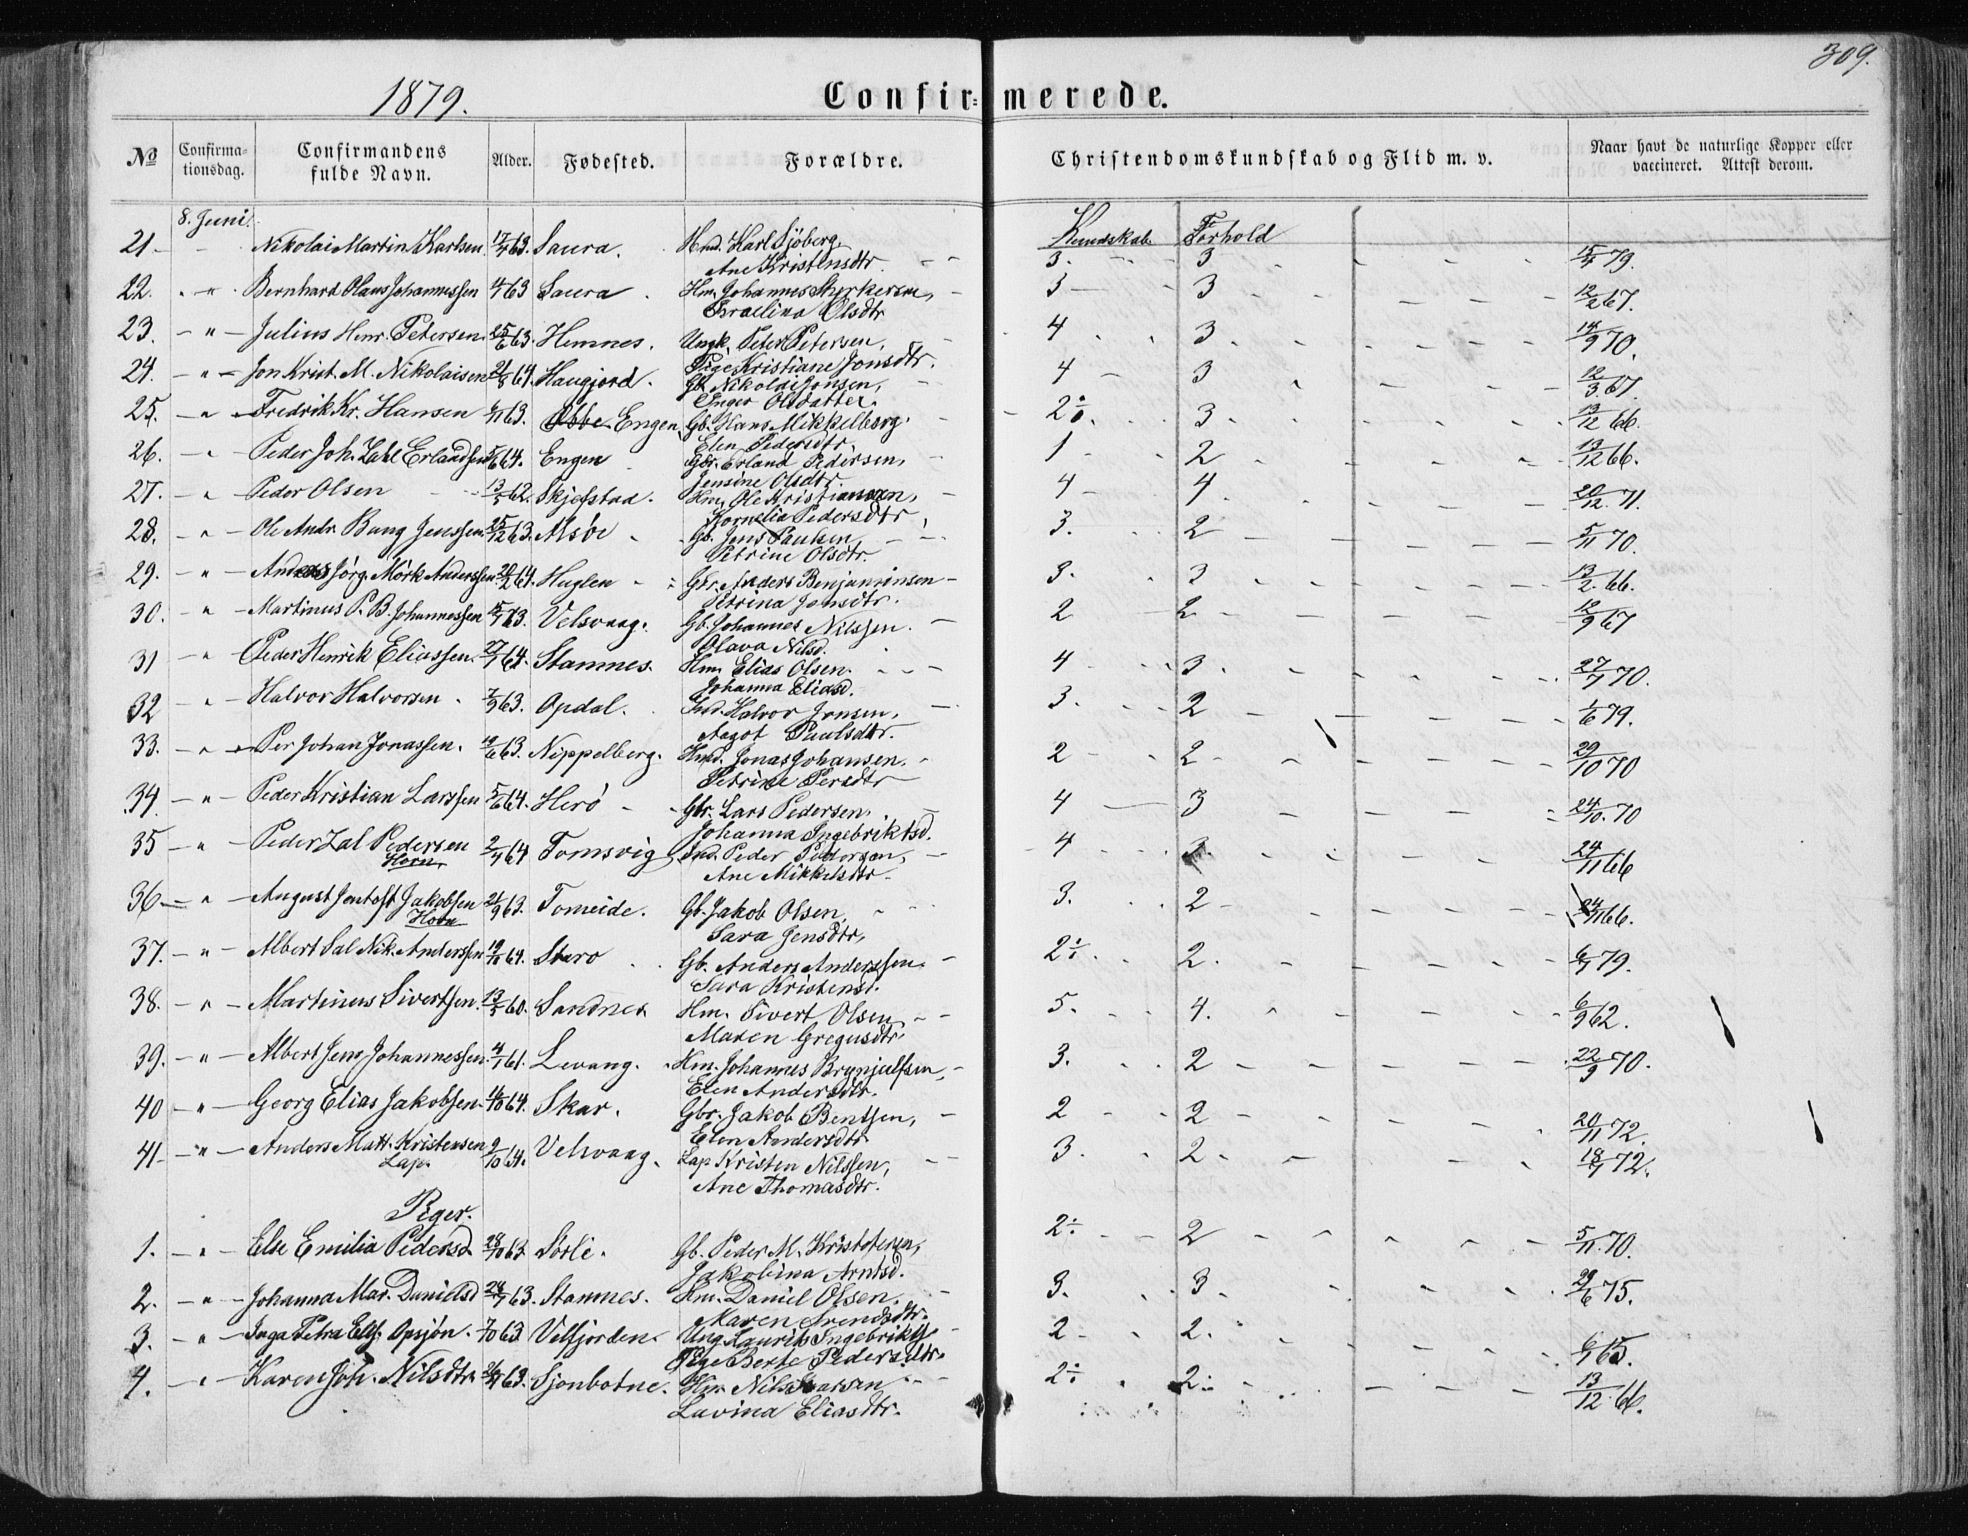 309.
1879.
Confirmerede.
№ Confirmationsdag. Confirmandens fulde Navn. Alder. Fødested. Forældre. Christendomskundskab og Flid m. v. Naar havt de naturlige Kopper eller vaccineret. Attest derom.
8. Juni. Kundskab. Forhold
21. Nikolai Martin Karlsen 63. Saura. Karl Sjöberg, 3. 3 79.
Ane Kristensdtr.
22. " Bernhard Olaus Johannessen 63 Saura. Hm. Johannes 3 12/2 67.
Israelina Olsdtr
23. " Julius Henr. Petersen 25/6 63. Hemnes. Ungk. Peter Petersen, 4 3 14/9 70.
Pige Kristiane Jonsdtr.
24. " Jon Krist. M. Nikolaisen 64. Haugjord. Gb. Nikolai Jonsen, 4 3 12/3 67.
Inger Olsdatter.
25. " Fredrik Kr. Hansen 63. Engen, Gb. Hans Mikkelborg. 2÷. 3 13/12 66.
Elen Pedersdtr,
26. " Peder Joh. Zahl Erlandsen 64. Engen Gbr. Erland Pedersen, 1 2 13/12 66.
Jensine Olsdtr
27. " Peder Olsen 13/5 62. Skjefstad. Hm. Ole Kristiansen, 4 4. 20/12 71.
Kornelia Pedersdtr,
28. " Ole Andr. Bang Jenssen 25/12 63. Alsöe Gb. Jens Paulsen, 3. 2 5/11 70.
Petrine Olsdtr.
29. " Anders Jörg. Mörk Anderssen 20/2 64. Huglen Gbr. Anders Benjaminsen 3. 3 13/2 66.
Petrina Jonsdtr.
30. " Martinus P. B. Johannessen 63. Velsvaag. Gb. Johannes Nilssen. 2 2 12/9 67
Olava Nilsd.
31 " Peder Henrik Eliassen. 64. Stamnes. Hm. Elias Olsen. 4 3. 70.
Johanna Eliasd.
32 " Halvor Halvorsen 63. Opdal. Ind. Halvor Jonsen, 3. 2 79.
Aagot Paulsdtr.
33. " Per Johan Jonassen. 63. Nippelberg. Jonas Johansen. 2 2 29/10 70
Petrine Persdtr
34. " Peder Kristian Larssen 64. Herö Gbr. Lars Pedersen, 4 3 24/10 70
Johanna Ingebriktsd.
35 " Peder Zal Pedersen 64 Tomsvig Ind. Peder Pedersen, 4 3. 24/11 66
Horn Ane Mikkelsdtr.
36 " August Jentoft Jakobsen 21/9 63. Tomeide. Gb. Jakob Olsen, 3. 2 24/11 66.
Horn Sara Jensdtr,
37. " Albert Sal Nik. Anderssen 64. Staro Gb. Anders Anderssen. 2÷. 2. 79.
Sara Kristensd.
38. " Martinus Sivertsen. 13/5 60. Sandnes Hm. Sivert Olsen 5. 4. 6/9 62.
Maren Gregusdtr.
39. " Albert Jens Johannessen. 61. Levang. Hm. Johannes Brynjulfsen, 3. 2 22/9 70.
Elen Andersdtr.
40 " Georg Elias Jakobsen. 64. Skar. Gbr. Jakob Bentsen, 2 2 20/11 72.
Elen Andersdtr
41. " Anders Matt. Kristensen 9/10 64. Velsvaag. Lap Kristen Nilssen, 3. 2 72.
Lap. Ane Thomasdtr.
Piger.
1. " Else Emilia Pedersd. 28/10 63. Sörli. Gb. Peder M. Kristofersen, 2÷ 2 5/11 70.
Jakobina Arntsd.
2. " Johanna Mar. Danielsd 63. Stamnes. Hm. Daniel Olsen, 3. 3 29/6 75.
Maren
3. " Inga Petra Opsjön. 7/10 63. Velfjorden. Ung. Laurits Ingebrikts 2 2. 65.
Pige Berte Pedersdtr.
4. " Karen Joh. Nilsdtr. 63. Sjonbotne. Hm. Nils 2÷ 2. 13/12 66.
Lavina Eliasdtr.